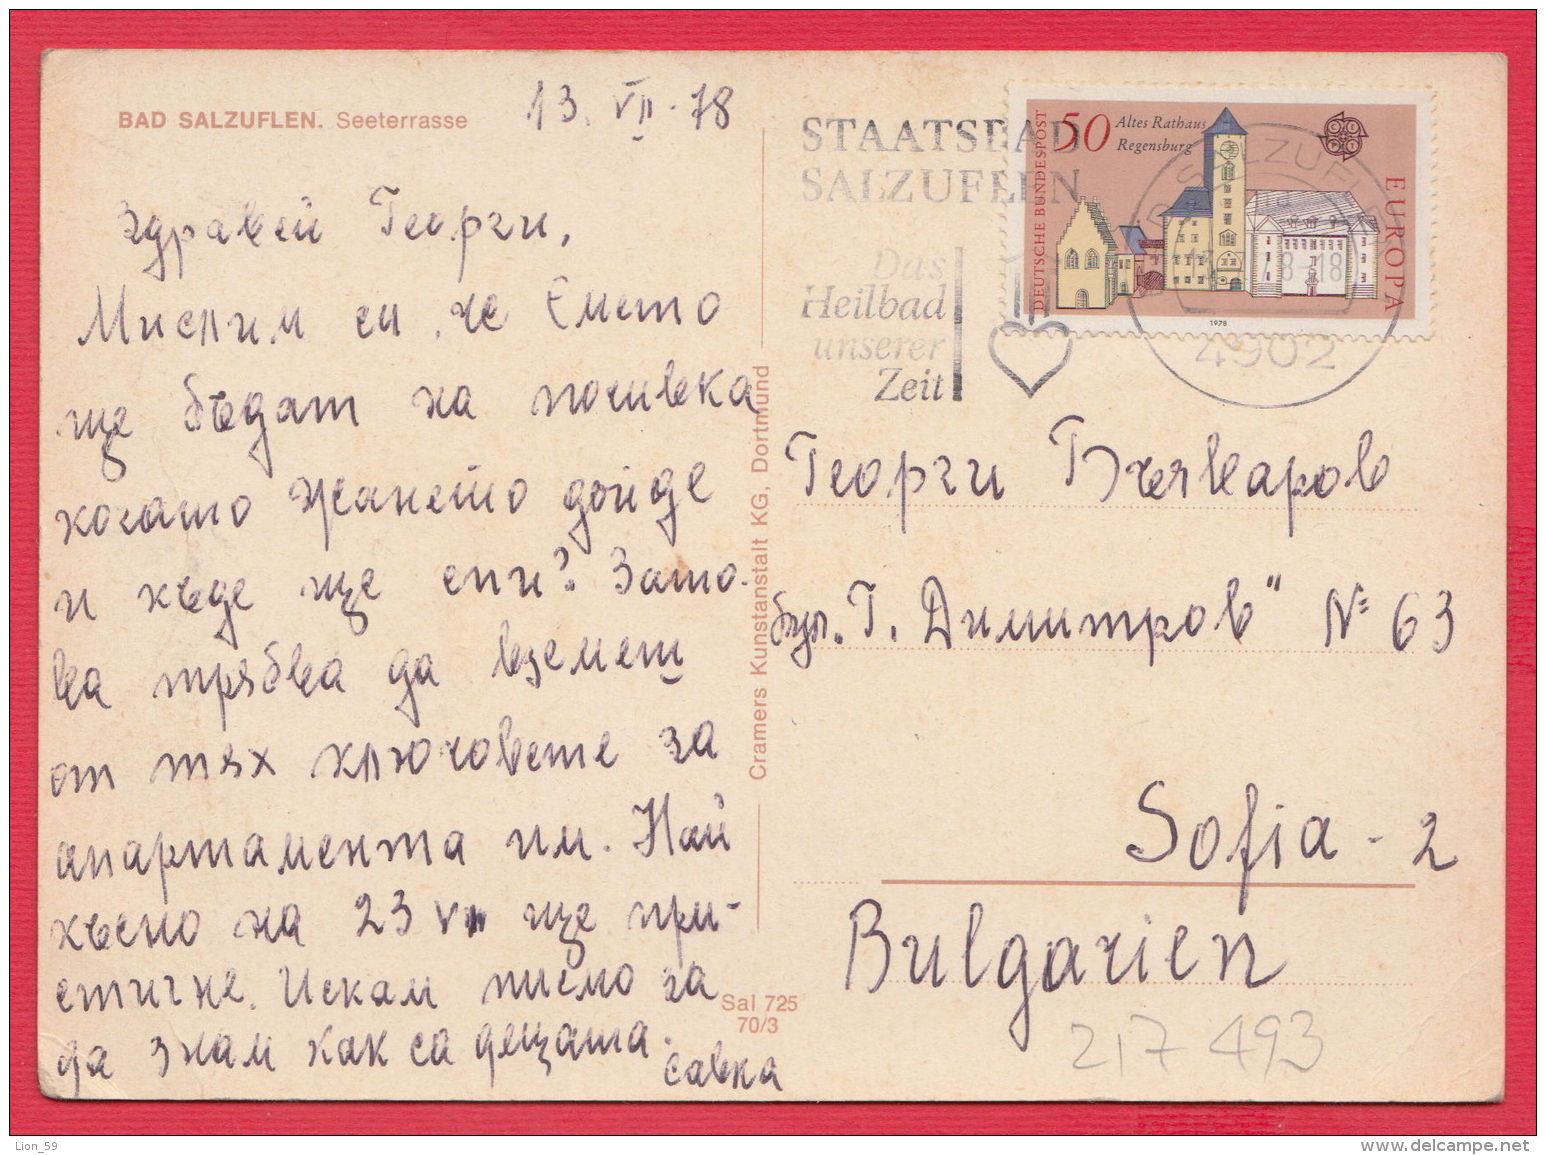 BAD SALZUFLEN. Seeterrasse
13. VII. 78
Здравей Георги,
Мислим си, че Емето
ще бъдат на почивка
когато Жането дойде
и къде ще спи? Зато-
ва трябва да вземеш
от тях ключовете за
апартамента им. Най
късно на 23 VII ще при-
стигне. Искам писмо за
да знам как са децата.
Савка
Sal 725
70/3
Cramers Kunstanstalt KG, Dortmund
STAATSBAD
SALZUFLEN
Das
Heilbad
unserer
Zeit
BAD SALZUFLEN
-18
4902
DEUTSCHE BUNDESPOST
50
Altes Rathaus
Regensburg
CEPT
EUROPA
1978
Георги
бул. Г. Димитров" № 63
Sofia - 2
Bulgarien
217 493
Lion_59
www.delcampe.net